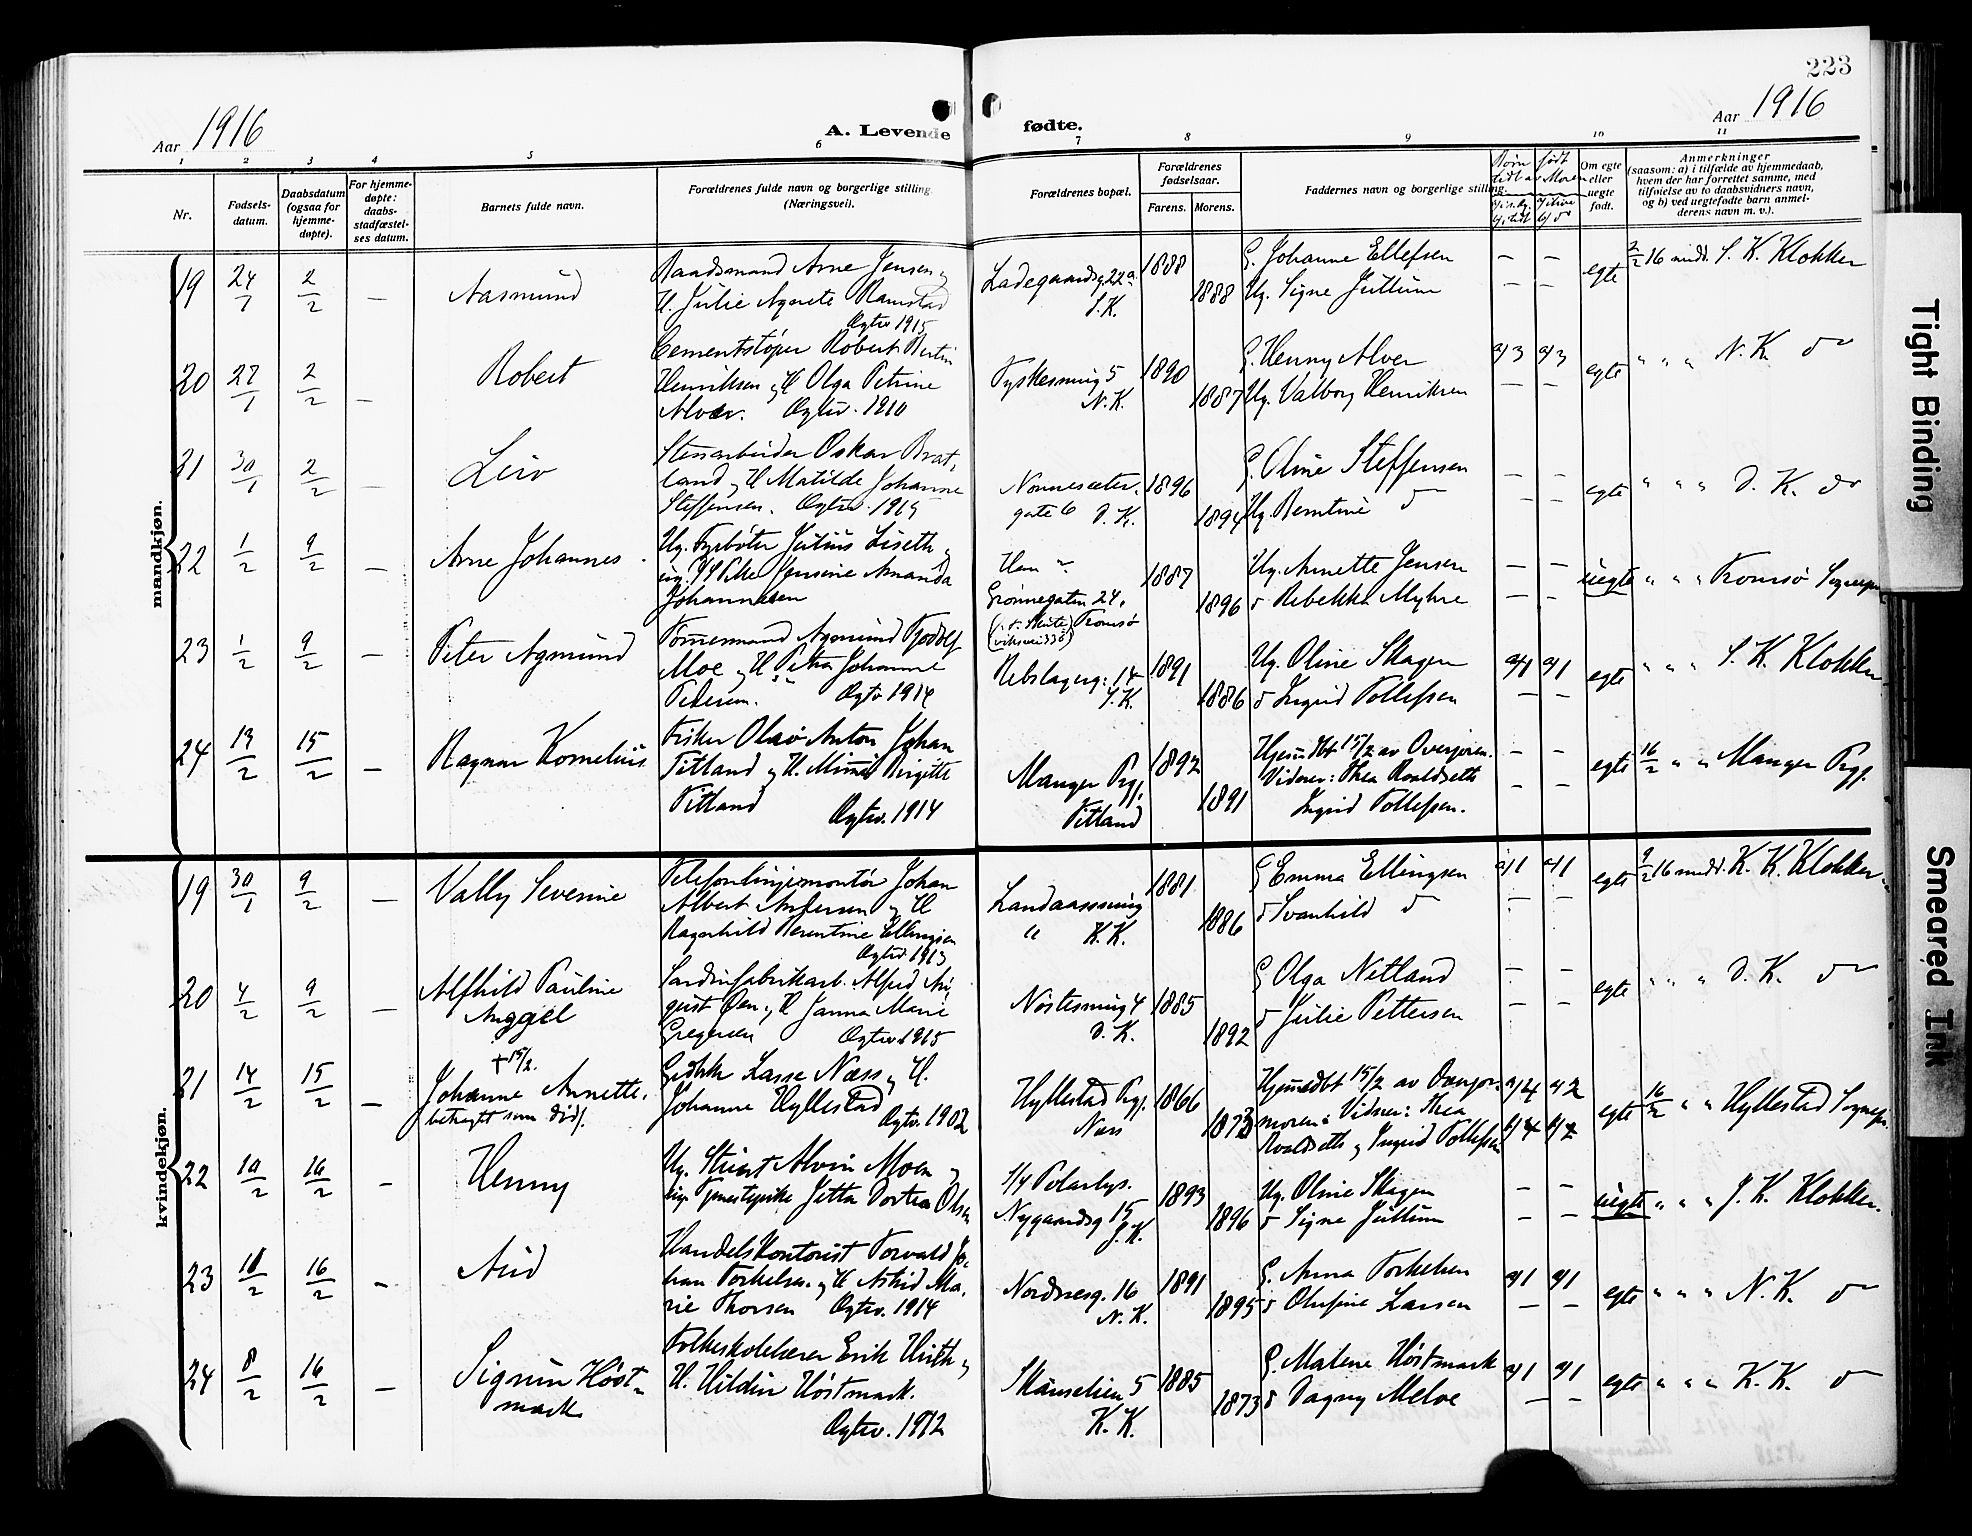 223
Aar 1916
A. Levende
fødte.
Aar 1916
1 2 3 4 5 6 7 8 9 10 11
Nr.
Fødsels-
datum.
Daabsdatum
(ogsaa for
hjemme-
døpte).
For hjemme-
døpte:
daabs-
stadfæstel-
ses datum.
Barnets fulde navn.
Forældrenes fulde navn og borgerlige stilling
(Næringsvei).
Forældrenes bopæl.
Forældrenes
fødselsaar.
Farens. Morens.
Faddernes navn og borgerlige stilling.
Børn født
av Moren
Om egte
eller
uegte
født.
Anmerkninger
(saasom: a) i tilfælde av hjemmedaab,
hvem der har forrettet samme, med
tilføielse av to daabsvidners navn,
og b) ved uegtefødte barn anmel-
derens navn m. v.).
mandkjøn.
19 24/1 2/2 — Aasmund
Baadsmand Arne Jensen og
H. Julie Agnete Ramstad
Egtev 1915
Ladegaardsg. 22a
S.K.
1888 1888
G. Johanne Ellefsen — —
Ug. Signe Juttum — —
egte 2/2 16 medd. S. K. Klokker
20 27/1 2/2 — Robert
Cementstøper Robert Bertin
Henriksen og H Olga Petrine
Alver. Egtev. 1910
Tyskesmug 5
N.K.
1890 1887
G. Henny Alver a/3 a/3
Ug. Valborg Henriksen — —
egte " " " N. K. do
21 30/1 2/2 — Leiv
Stenarbeider Oskar Brat-
land og H Matilde Johanne
Steffensen. Egtev. 1915
Nonnesæter-
gate 6 D.K.
1896 1894
G. Oline Steffensen — —
Ug. Berntine do — —
egte " " " D. K. do
22 1/2 9/2 — Arne Johannes
Ug. Fyrbøter Julius Liseth og
Jensine Amanda
Johannesen
Grønnegaten 24,
Tromsø
1887 1896
Ug. Annette Jensen — —
do Rebekka Myhre — —
uegte " " " Tromsø Sognepr.
23 1/2 9/2 — Peter Agmund
Tømmermand Agmund Tjodolf
Moe og H Petra Johanne
Pedersen. Egtev 1914
Rebslagerg. 14
S.K.
1891 1886
Ug. Oline Skagen a/1 a/1
do Ingrid Tollefsen — —
egte " " " S. K. Klokker
24 13/2 15/2 — Ragnar Kornelius
Fisker Olav Anton Johan
Titland og H. Mimmi Birgitte
Titland Egtev. 1914
Manger Prgj.
Titland
1892 1891
Hjemdbt 15/2 av Overjorem.
Vidner: Thea Roaldseth — —
Ingrid Tollefsen. — —
egte 16/2 " " Manger Prgj.
kvindekjøn.
19 30/1 9/2 — Vally Severine
Telefonlinjemontør Johan
Albert Andersen og H
Ragnhild Berentine Ellingsen
Egtev 1913
Landaassmug
" K.K.
1881 1886
G Emma Ellingsen a/1 a/1
do Svanhild do — —
egte 9/2 16 medd. K. K. Klokker
20 4/2 9/2 — Alfhild Pauline
Auggel
Sardinfabrikarb. Alfred Au-
gust og H Janna Marie
Gregersen Egtev 1915
Nøstesmug 4
D.K.
1885 1892
G Olga Netland — —
do Julie Pettersen — —
egte " " " D. K. do
+ 15/2.
21 14/2 15/2 — Johanne Annette.
betragt som død f.
Grdbr Lasse Næss og H.
Johanne Hyllestad
Egtev. 1902
Hyllestad Prgj.
Næss
1866 1873
Hjemdbt 15/2 av Overjor- a/4 a/2
moren. Vidner: Thea
Roaldseth og Ingrid Tollefsen b/4 b/2
egte 16/2 " " Hyllestad Sognepr.
22 10/2 16/2 — Henny
Ug. Stuert Alvin Moen og
ug. Tjenestepike Jetta Dortea Olsen
S/S Polarlys.
Nygaardsg 15
J.K.
1893 1896
Ug. Oline Skagen — —
do Signe Juttum — —
uegte " " " J. K. Klokker.
23 10/2 16/2 — Aud
Handelskontorist Torvald Jo-
han Torkelsen og H Astrid Ma-
rie Thorsen Egtev. 1914
Nordnesg. 16
N.K.
1891 1895
G. Anna Torkelsen a/1 a/1
do Olufine Larsen — —
egte " " " N. K. do
24 8/2 16/2 — Sigrun Høst-
mark
Folkeskolelærer Erik Hirth og
H. Hildur Høstmark.
Egtev. 1912
Skanselien 5
K.K.
1885 1873
G. Malene Høstmark a/1 a/1
do Dagny Meloe — —
egte " " " K. K. do
Tight Binding
Smeared Ink